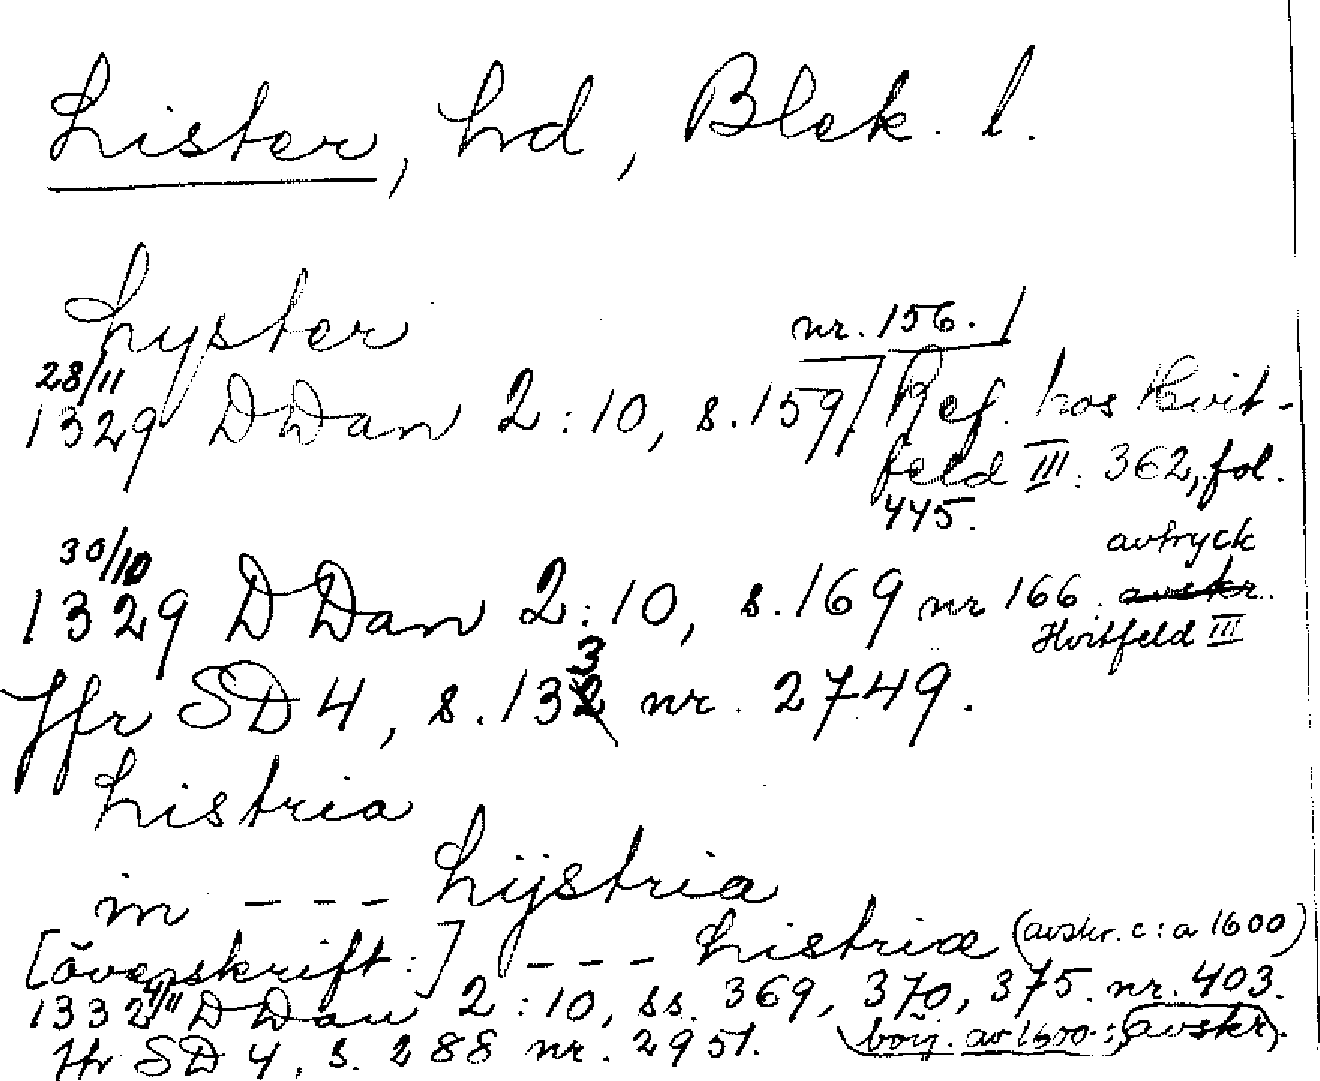 Lister, hd, Blek. l.
Lyster
nr. 156.
28/11
1329 DDan 2:10, s. 159 Ref. hos Hvit-
feld III: 362, fol.
445.
30/10
avtryck
1329 DDan 2:10, s. 169 nr 166. avskr.
Hvitfeld III
3
Jfr SD 4, s. 132 nr. 2749.
Listria
in --- Lÿstria
[överskrift:] --- Listriæ (avskr. c:a 1600)
1332 4/11 DDan 2:10, ss. 369, 370, 375. nr. 403.
Jfr SD 4, s. 288 nr. 2951. börj. av 1600: (avskr).